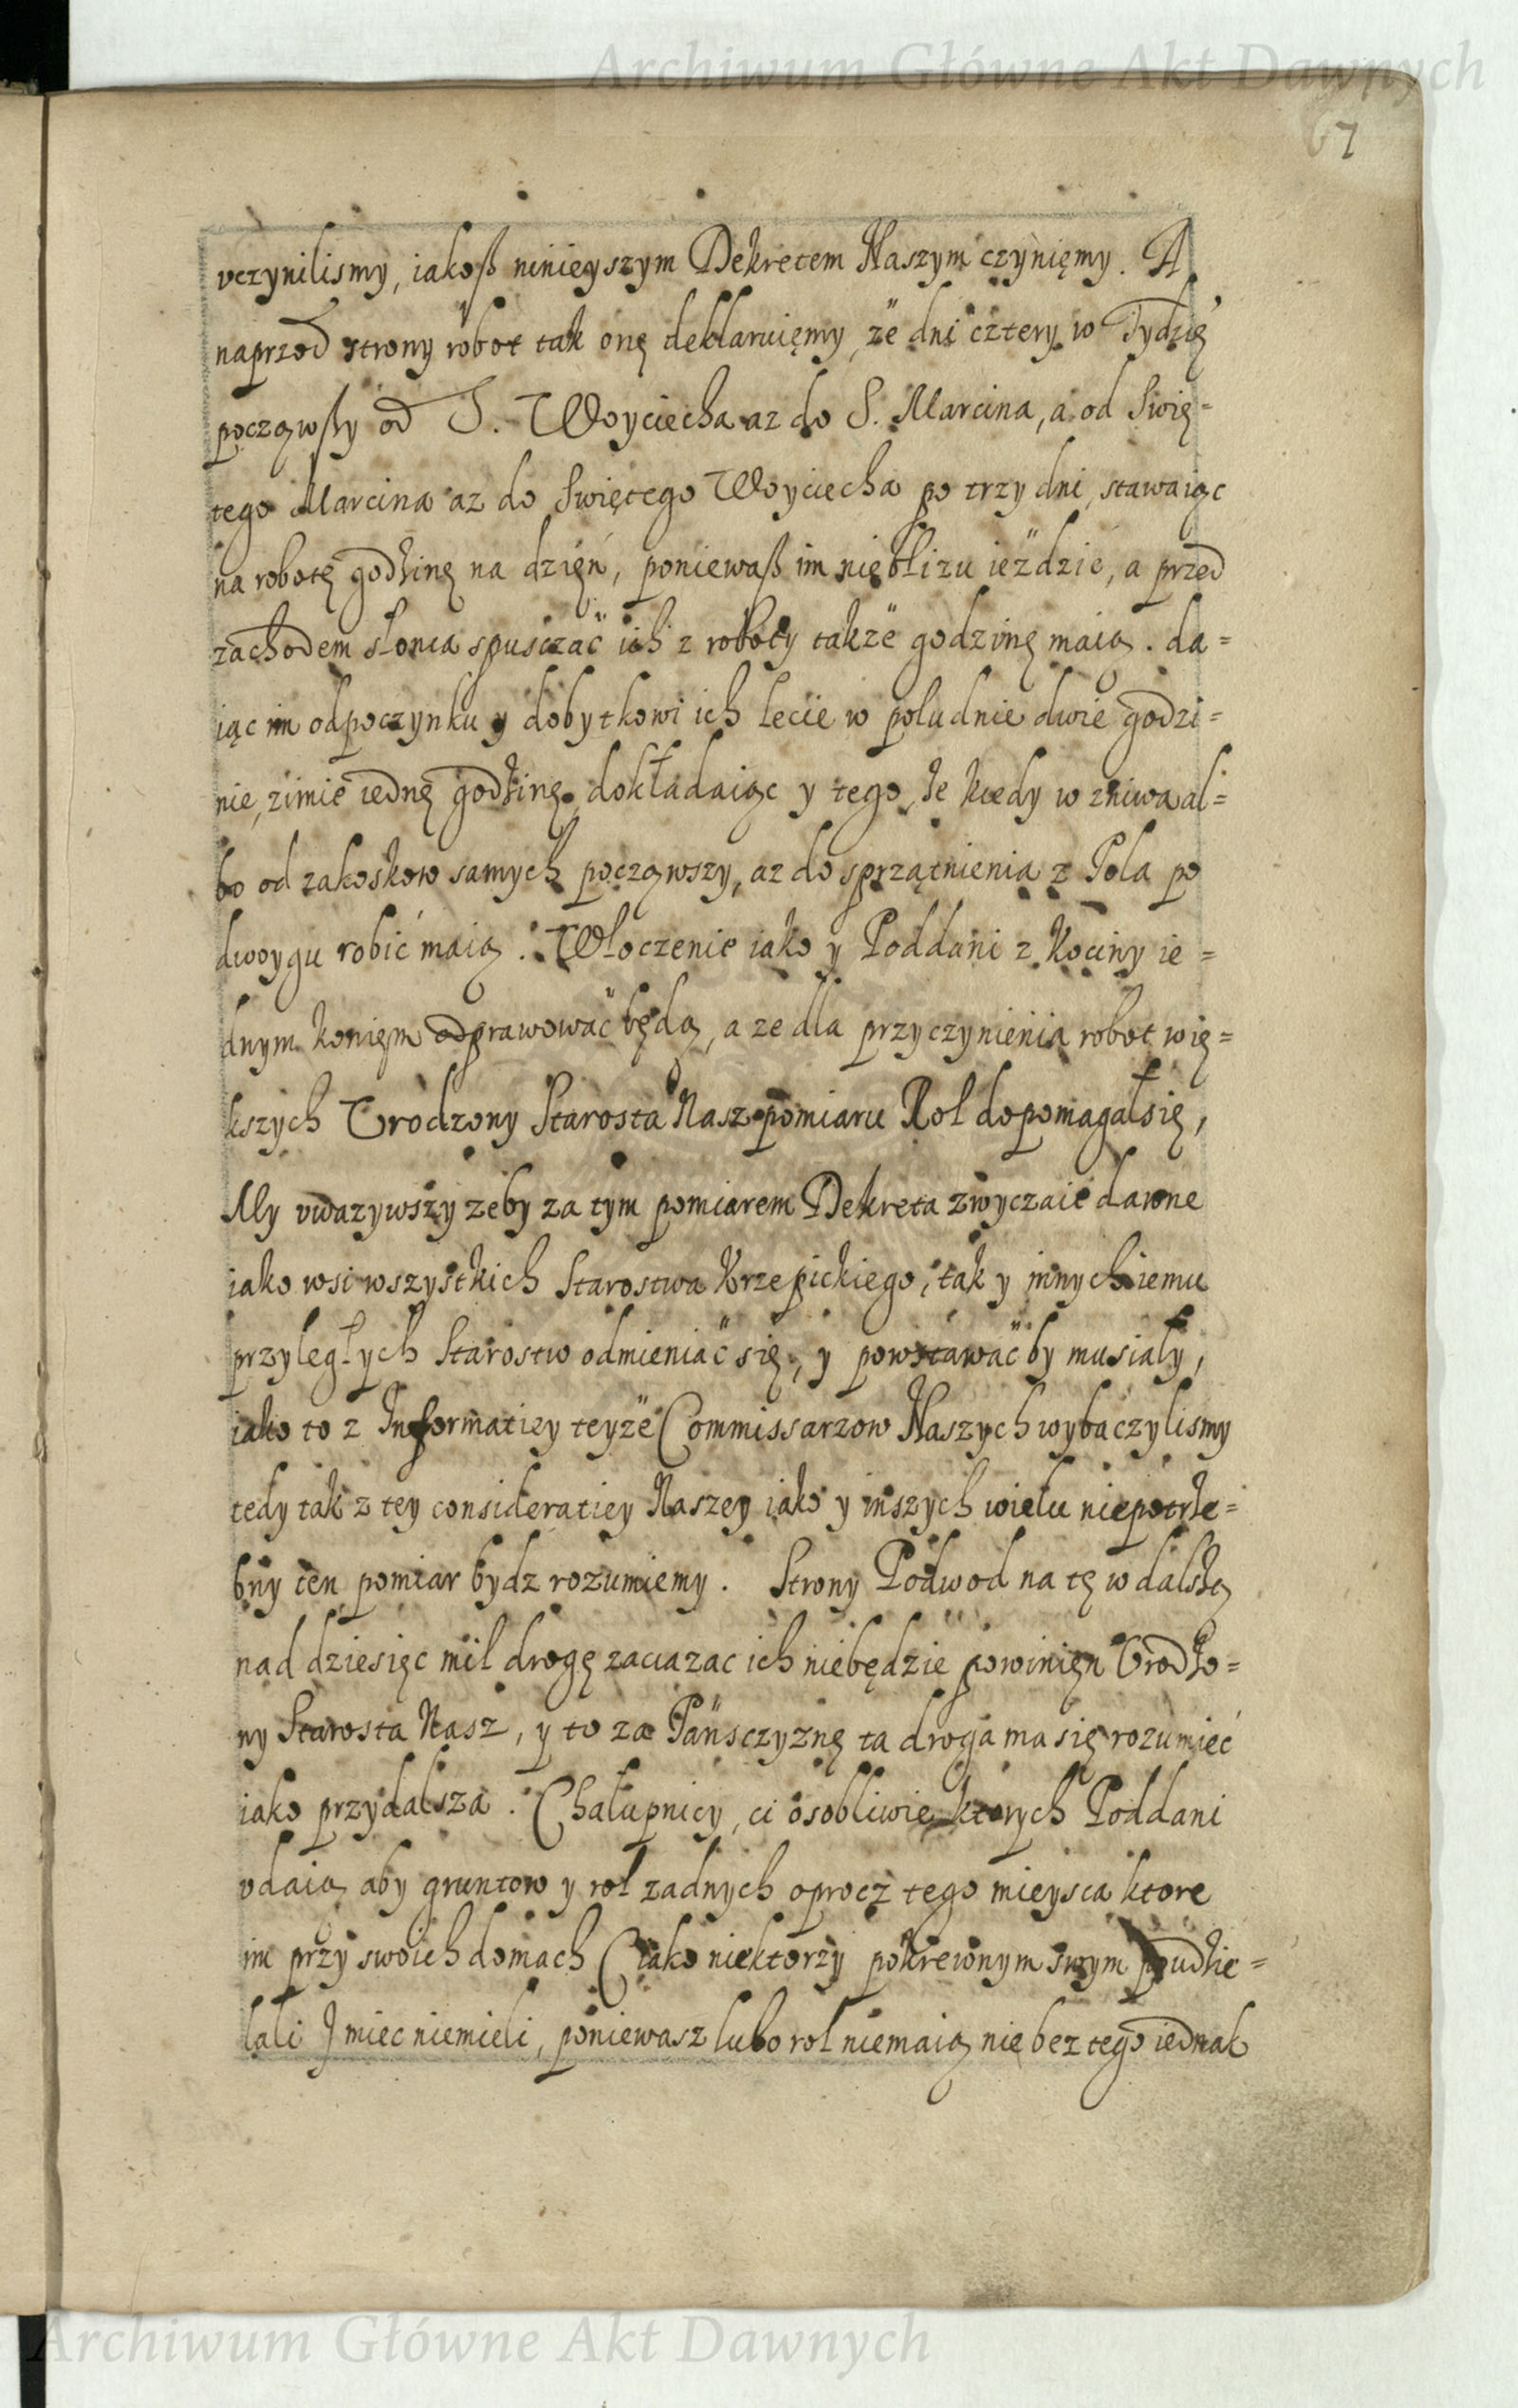 Archiwum Główne Akt Dawnych
67
vczynilismy, iakoß ninieyszym Dekretem Naszym czynięmy. A
naprzod strony robot tak onę deklaruięmy, że dni cztery w Tydzię
począwßy od S. Woyciecha az do S. Marcina, a od Swię=
tego Marcina az do Swiętego Woyciecha po trzy dni, stawaiąc
na robotę godzinę na dzięń, poniewaß im nię blizu ieździć, a przed
zachodem słonca spusczać ich z roboty także godzinę maią. da=
iąc im odpoczynku y dobytkowi ich lecie w południe dwie godzi=
nie, zimie iednę godzinę, dokładaiąc y tego, że kiedy w zniwa al=
bo od zakoskow samych począwszy, az do sprzątnienia z Pola po
dwoygu robić maią. Włoczenie iako y Poddani z Kociny ie=
dnym konięm odprawować będą, a ze dla przyczynienia robot wię=
kszych Vrodzony Starosta Nasz pomiaru Rol dopomagał się,
My vwazywszy zeby za tym pomiarem Dekreta zwyczaie dawne
iako wsi wszystkich Starostwa Krzepickiego, tak y innych iemu
przyległych Starostw odmieniać się, y powstawać by musiały,
iako to z Informatiey teyże Commissarzow Naszych wybaczylismy
tedy tak z tey consideratiey Naszey iako y inszych wielu niepotrze=
bny ten pomiar bydz rozumiemy. Strony Podwod na tę w dalszą
nad dziesięc mil drogę zaciazac ich niebędzie powinięn Vrodzo=
ny Starosta Nasz, y to za Pańsczyznę ta droga ma się rozumieć
iako przydalsza. Chałupnicy, ci osobliwie ktorych Poddani
vdaią aby gruntow y rol zadnych oprocz tego mieysca ktore
im przy swoich domach (iako niektorzy pokrewnym swym poudzie=
lali) miec niemieli, poniewasz lubo rol niemaią nie bez tego iednak
Archiwum Główne Akt Dawnych